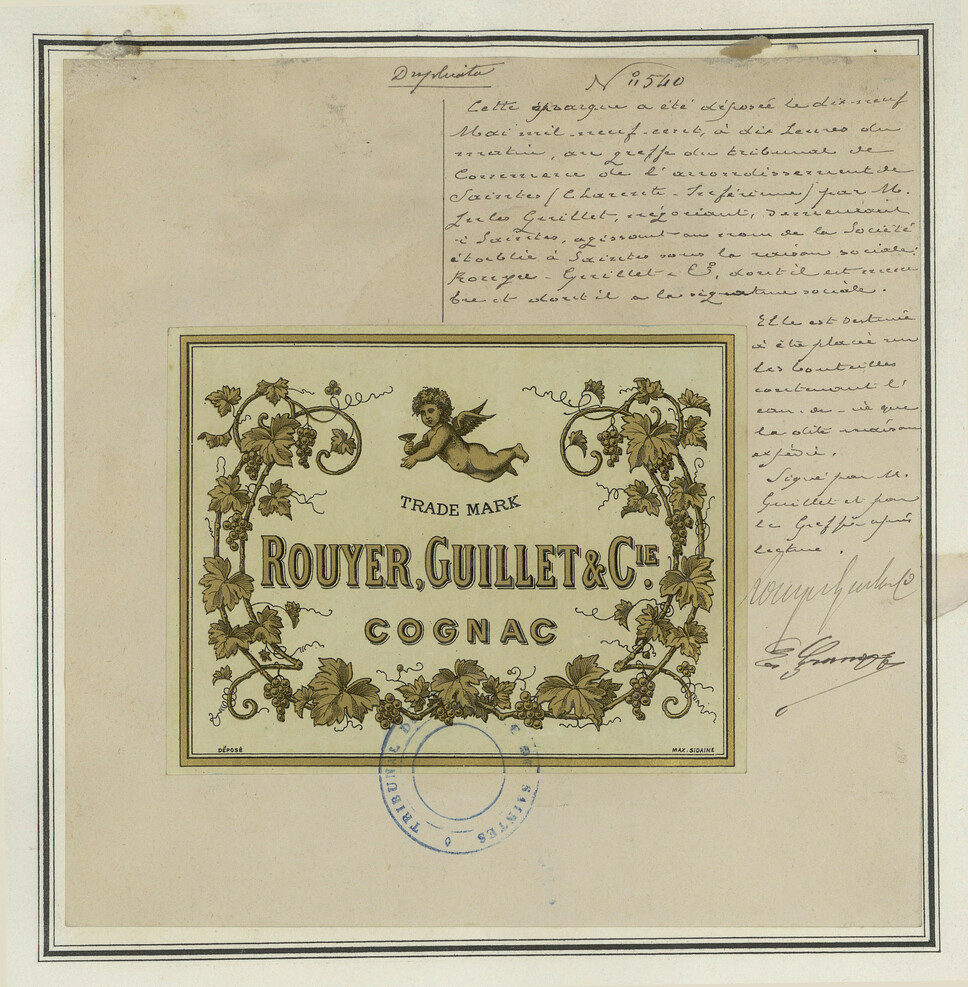 Duplicata
N° 11540
Cette marque a été déposée le dix-neuf
Mai mil-neuf-cent, à dix heures du
matin, au greffe du tribunal de
Commerce de l'arrondissement de
Saintes (Charente-Inférieure) par M.
Jules Guillet, négociant, demeurant
à Saintes, agissant au nom de la Société
établie à Saintes sous la raison sociale:
Rouyer-Guillet & Cº, dont il est mem
bre et dont il a la signature sociale.
Elle est destinée
à être placée sur
les bouteilles
contenant l'
eau-de-vie que
la dite maison
expédie.
Signé par M.
Guillet et par
le Greffier après
lecture.
Rouyer Guillet & Co
TRADE MARK
ROUYER, GUILLET & CIE.
COGNAC
DÉPOSÉ
MAX. SIDAINE
TRIBUNAL D
E DE SAINTES